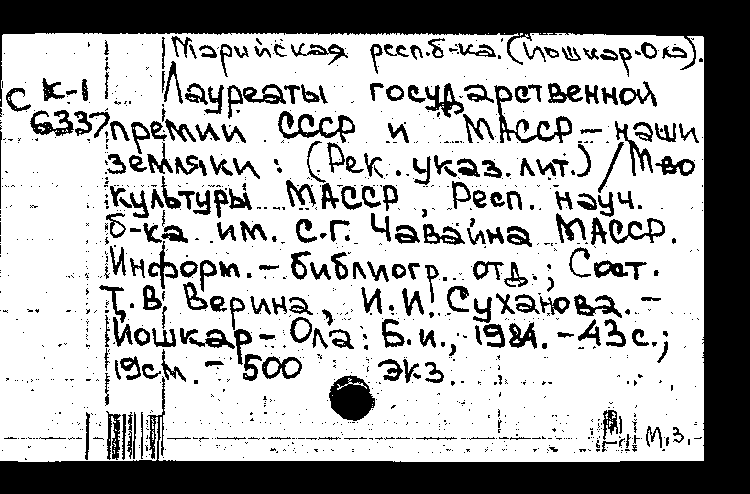 Марийская респ.б-ка. (Йошкар-Ола).
С К-1
6337
Лауреаты государственной
премии СССР и МАССР – наши
земляки : (Рек. указ. лит.) / М-во
культуры МАССР, Респ. науч.
б-ка им. С.Г. Чавайна МАССР.
Информ. – библиогр. отд. ; Сост.
Т. В. Верина, И. И. Суханова. –
Йошкар – Ола : Б. и., 1984. – 43 с. ;
19см. – 500 экз.
М.З.